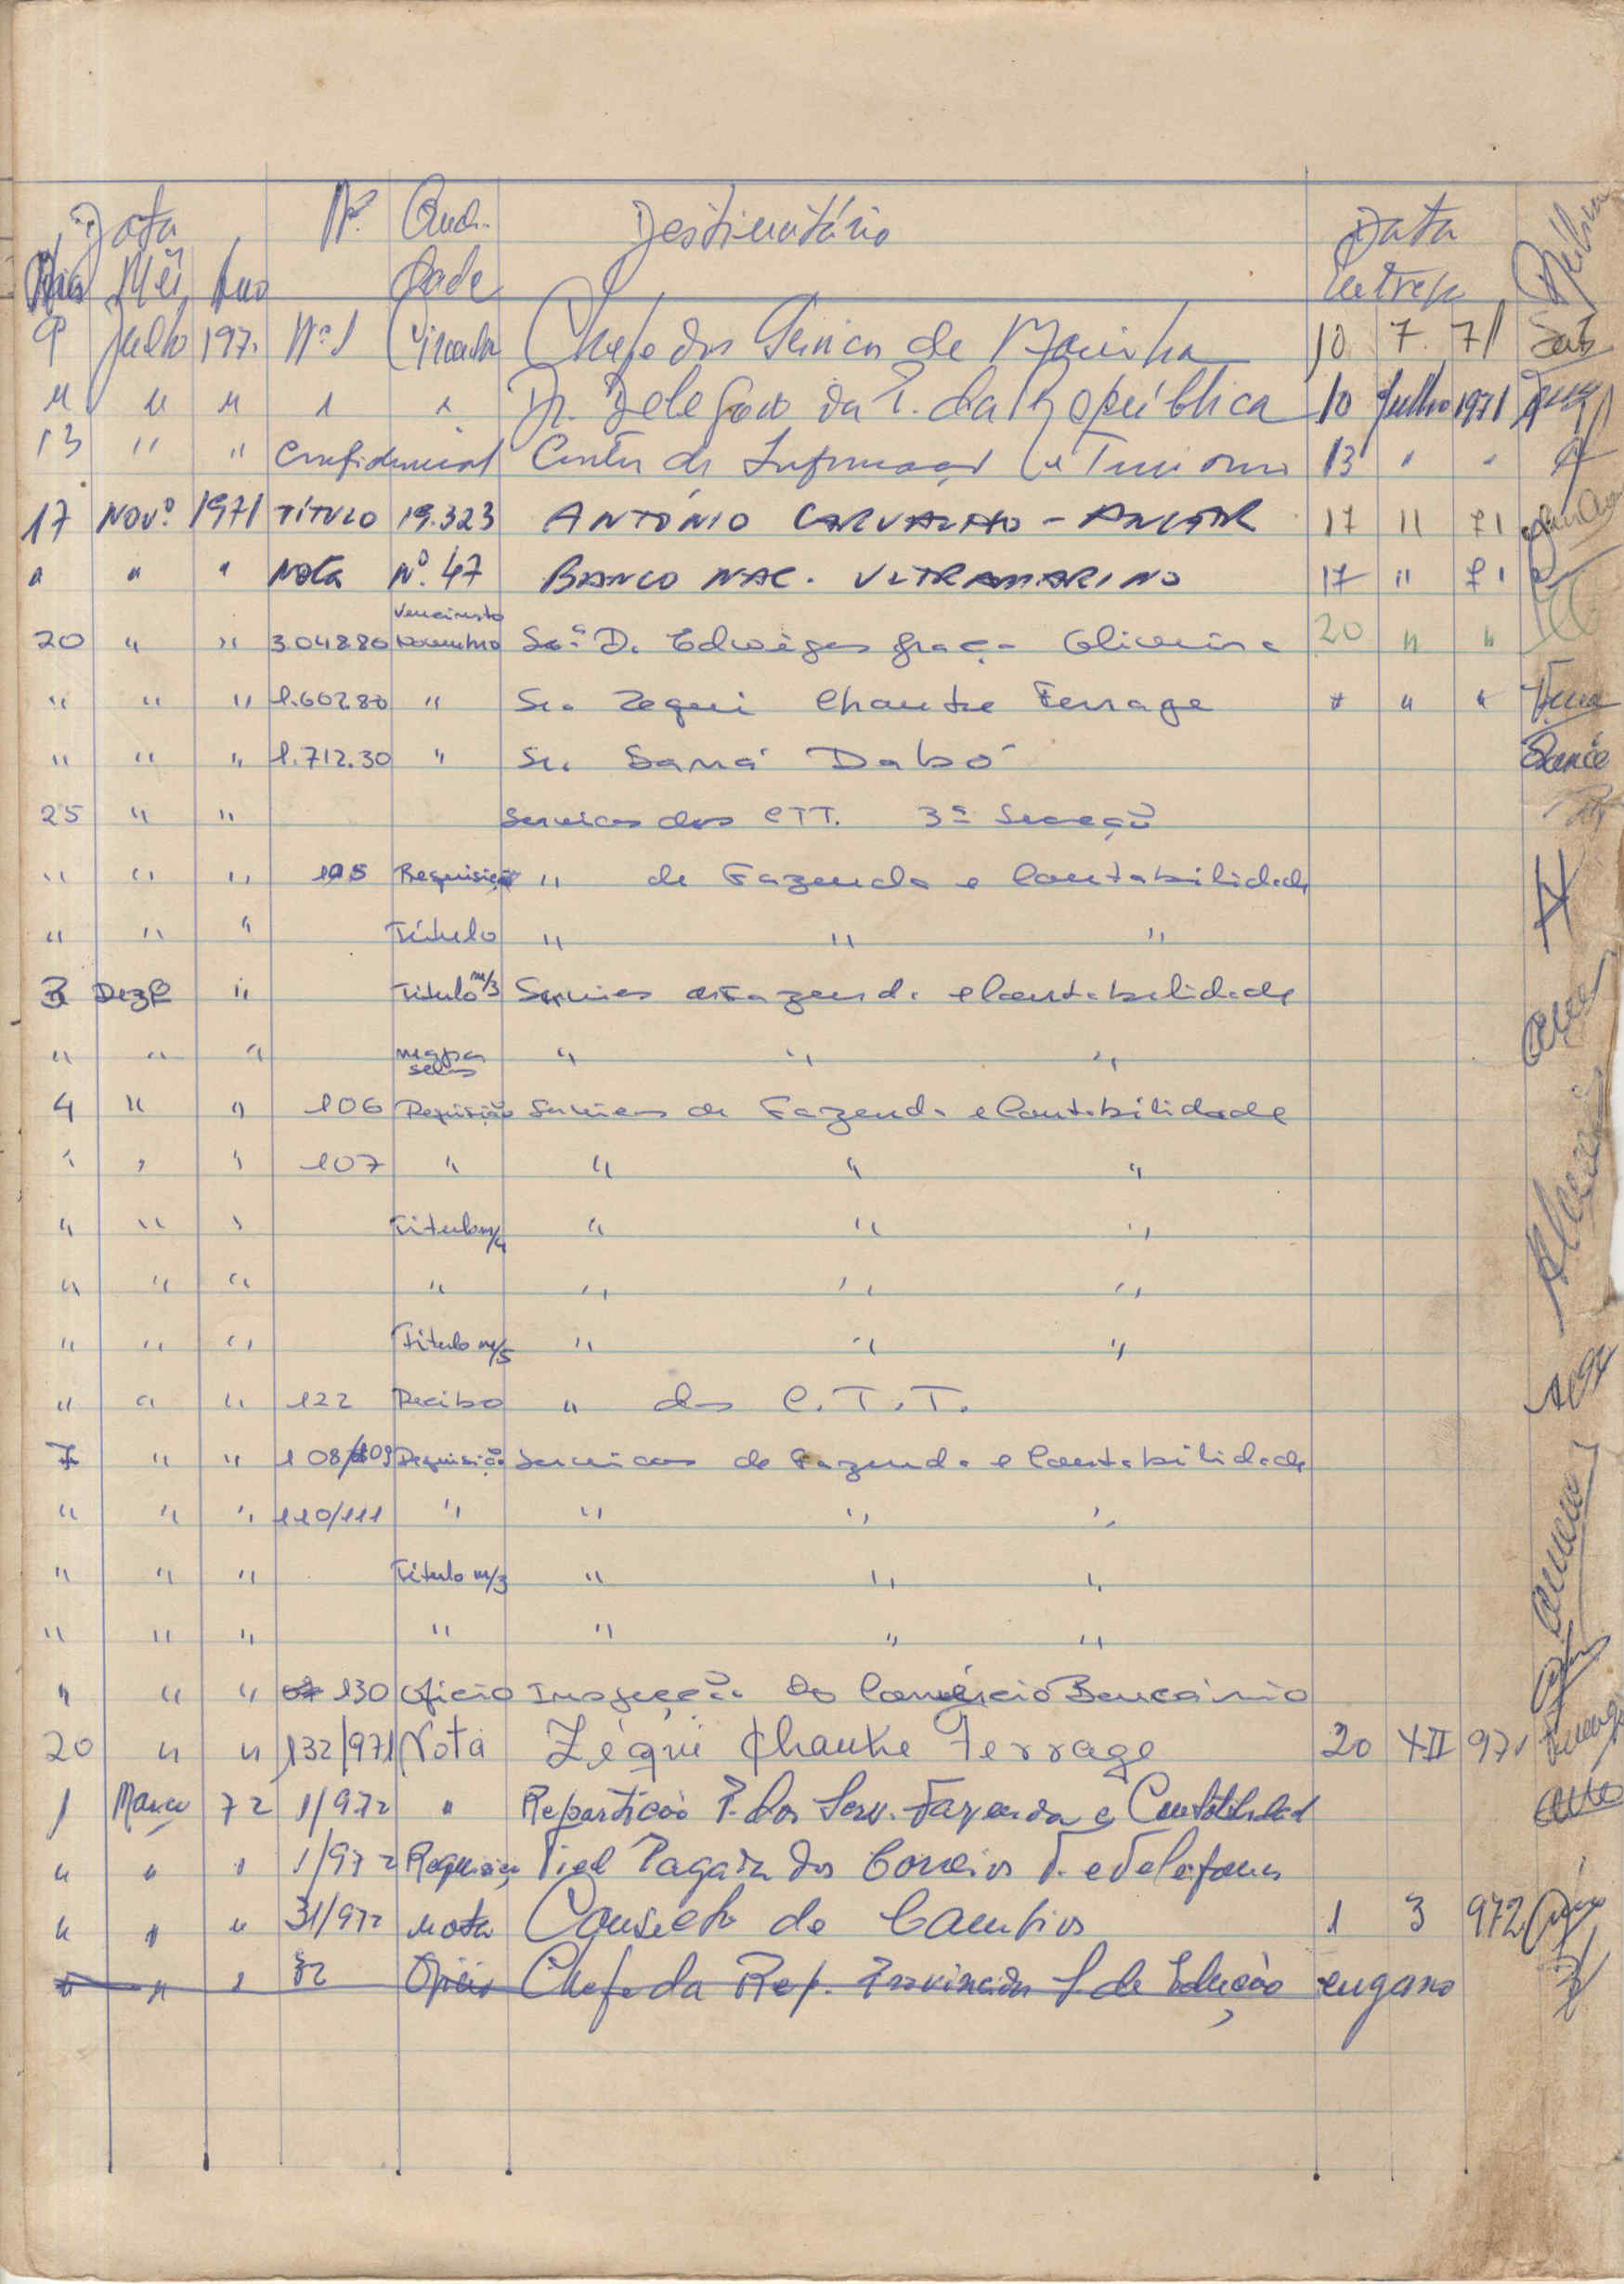 Data Nº. Destinatário Data
Mês Ano dade Entrega
9 Julho 197. Nº 1 Circular Chefe dos Serviços de Marinha 10 7. 71
" " " 1 " Dr. Delegado da P. da República 10 Julho 1971
13 " " Confidencial Centro de Informação e Turismo 13 " "
17 Novº. 1971 TÍTULO 19.323 ANTÓNIO CARVALHO - ANCAR 17 11 71
" " " Nota Nº. 47 BANCO NAC. ULTRAMARINO 17 11 71
Vencimento
20 " " 3.048.80 Novembro Srª D. Edwiges Graça Oliveira 20 " "
" " " 1.602.80 " Sr. Zequi Chantre Ferrage " " "
" " " 1.712.30 " Sr. Saná Dabó
25 " " Serviços dos CTT. 3ª Secção
" " " 105 Requisição " de Fazenda e Contabilidade
" " " Título " " "
3 Dezº " Título m/3 Serviços de Fazenda e Contabilidade
" " " mapa selos " " "
4 " " 106 Requisição Serviços de Fazenda e Contabilidade
" " " 107 " " " "
" " " Título m/4 " " "
" " " " " " "
" " " Título m/5 " " "
" " " 122 Recibo " dos C.T.T.
7 " " 108/109 Requisição Serviços de Fazenda e Contabilidade
" " " 110/111 " " " "
" " " Título m/3 " " "
" " " " " " "
" " " 130 Ofício Inspecção do Comércio Bancário
20 " " 132/971 Nota Zéqui Chantre Ferrage 20 XII 971
1 Março 72 1/972 " Repartição P. dos Serv. Fazenda e Contabilidad
" " " 1/972 Requisição Fiel Pagador dos Correios T. e Telefones
" " " 31/972 Nota Conselho de Cambios 1 3 972
" " " 32 Ofício Chefe da Rep. Provincial S. de Educação engano